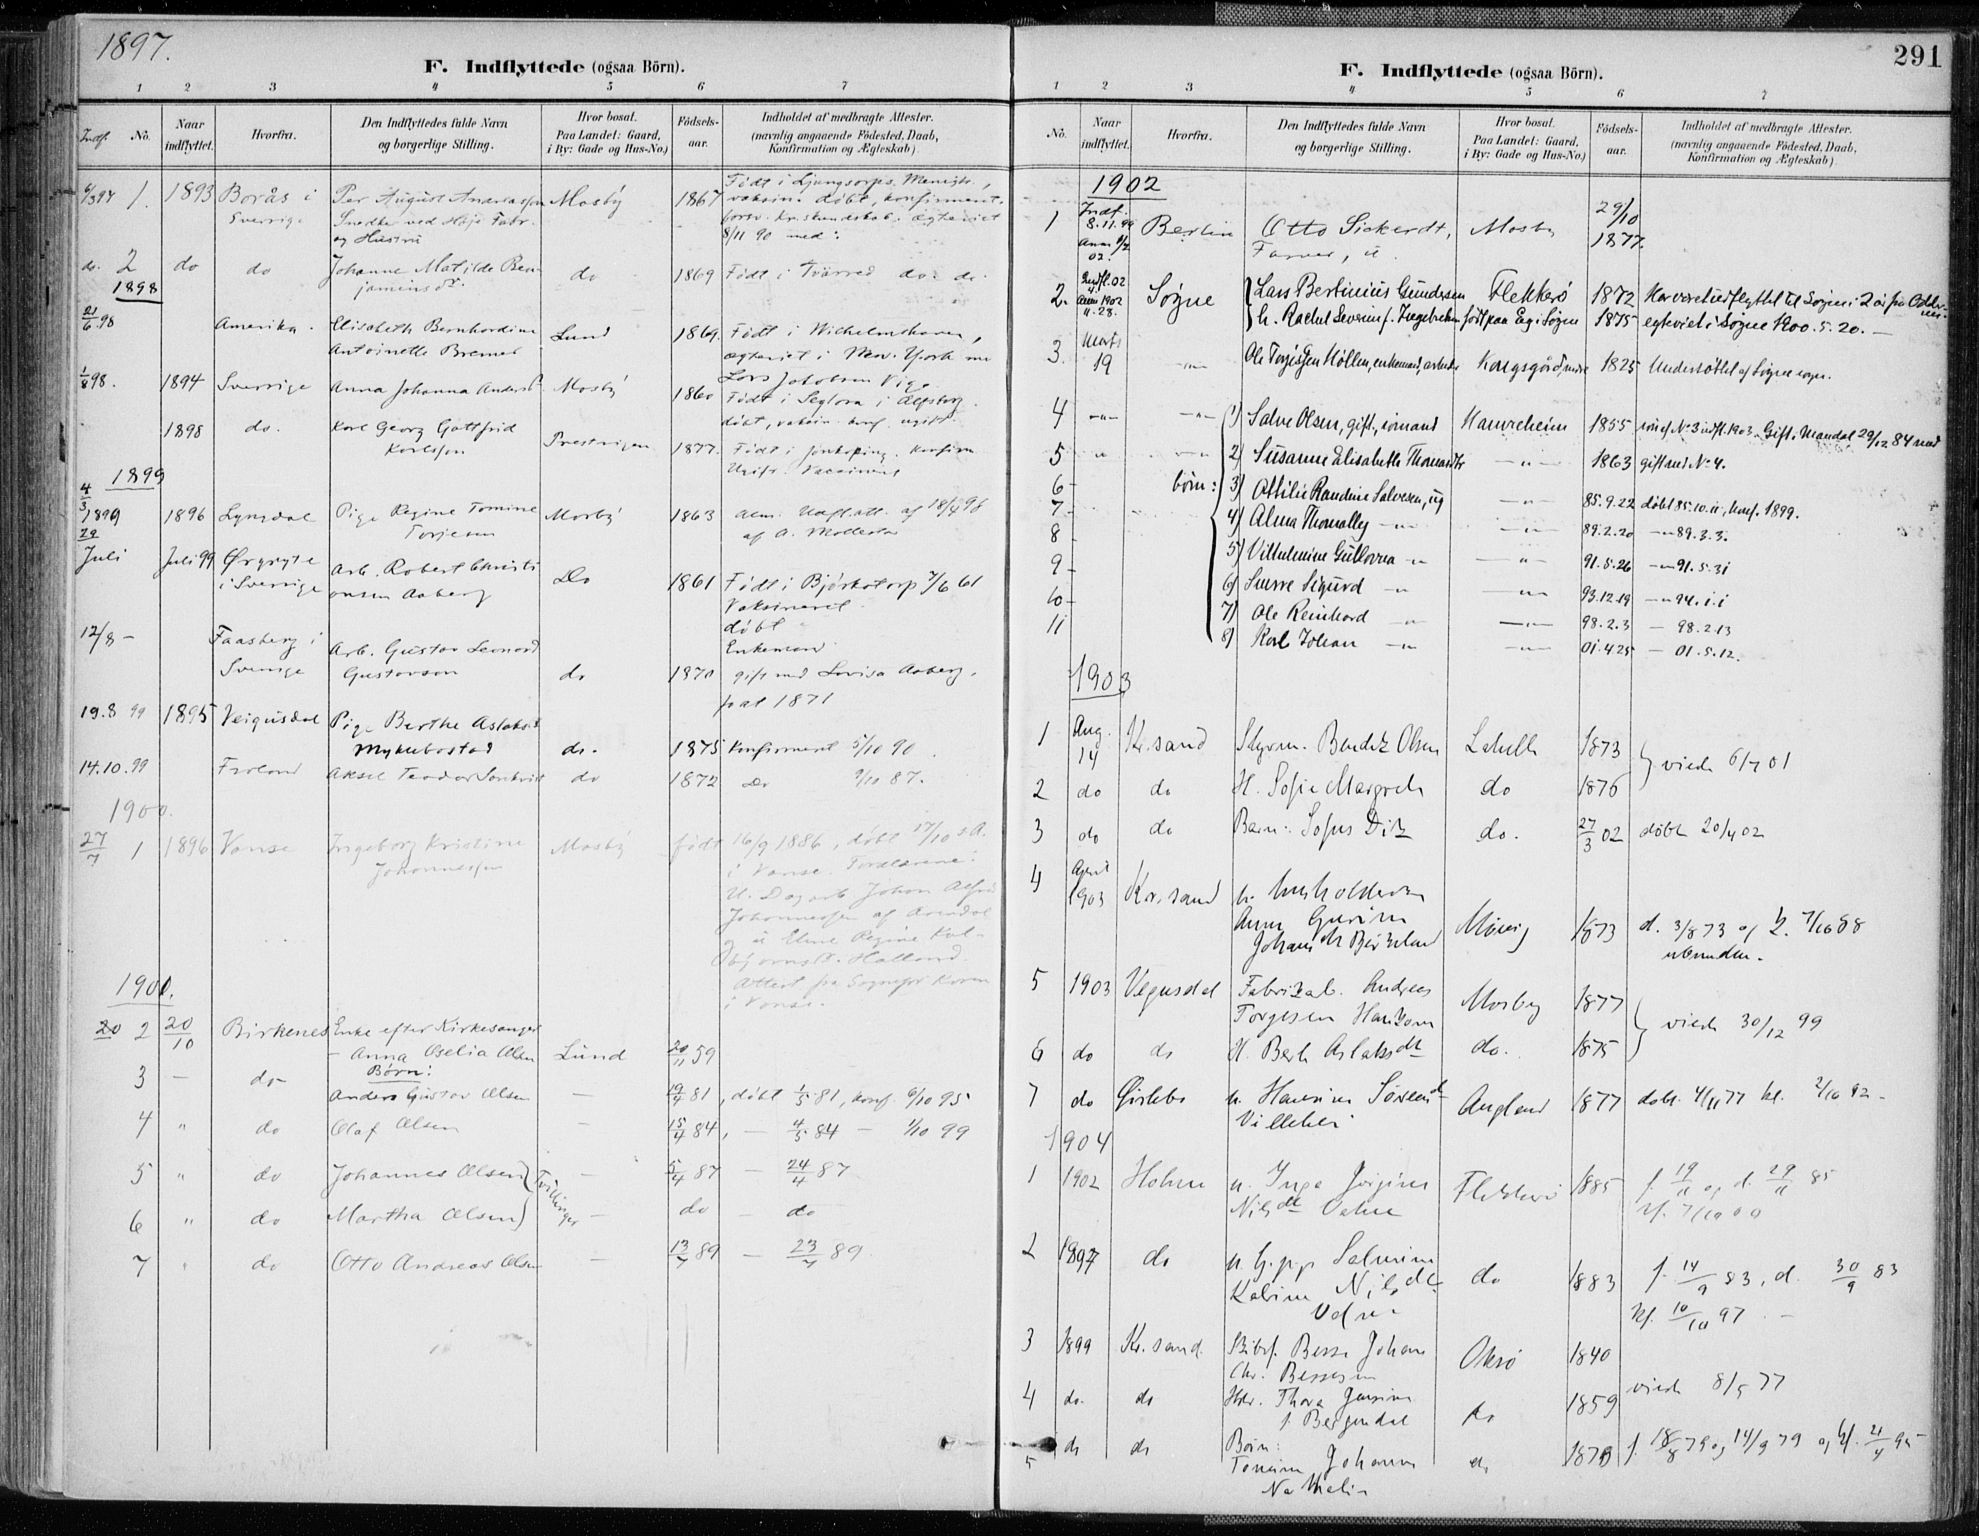 1897.
F. Indflyttede (ogsaa Börn).
1 2 3 4 5 6 7
Indf. No. Naar indflyttet. Hvorfra. Den Indflyttedes fulde Navn og borgerlige Stilling. Hvor bosat. Paa Landet: Gaard, i By: Gade og Hus-No.) Födsels-aar. Indholdet af medbragte Attester. (navnlig angaaende Födested, Daab, Konfirmation og Ægteskab)
1. 1893 Borås i Per August Andreasson Mosby 1867 Födt i
Sverrige Snedker ved Høje Fabr. vaksin. döbt, konfirmert.
og Hustru
8/11 90 med:
do. 2 do do Johanne Matilde Ben- do 1869 Födt i Tvärred do. do.
jaminsdr.
1898
21/6 98 Amerika. Elisabeth Bernhardine Lund 1869. Födt i Wilhelmshaven,
Antoinette Bremel ægteviet i New York m
Lars Jakobsen Vige
1/8 98. 1894 Sverrige Anna Johanna Andersd. Mosby 1860 Födt i Seglora i Elfsborg.
döbt, vaksin. konf. ugift.
1898 do. Karl Georg Gottfrid 1877. Födt i Jönköping. Konfirm
Karlsson Ugift. Vaccineret
1899
4/3 1899 1896 Lyngdal Pige Regine Tomine Mosby 1863 Alm. Udfl.att. af 18/4 98
Torjesen af A. Mollestad
29 Juli Juli 99 Ørgryte Arb. Robert Christi Do 1861 Födt i Björketorp 7/6 61
i Sverrige onsen Aaberg Vaksineret
döbt
Enkemand
12/8 - Faasberg i Arb. Gustav Leonard
Sverrige Gustavson do 1870 gift med Lovisa Aaberg,
född 1871
19.8 99 1895 Veigusdal Pige Berthe Aslaksd.
Myklebostad do. 1875 Konfirmeret 5/10 90.
14.10.99 Froland Aksel Teodor do 1872 Do 9/10 87.
1900.
27/7 1 1896 Vanse Ingeborg Kristine Mosby født 16/9 1886, døbt 17/10 s.A.
Johannessen i Vanse. Forældrene:
U. Dagarb. Johan Alfred
Johannessen af Arendal
og u Eline Regine Kol-
bjørnsd. Holland.
Attest fra Sogneprest
i Vanse.
1900.
20 2 20/10 Birkenes Enke efter Kirkesanger
- Anna Oselia Olsen Lund 20/11 59
Børn:
3 - do Anders Gustav Olsen - 19/4 81, döbt 1/5 81, konf. 6/10 95
4 " do Olaf Olsen - 15/4 84, - 4/5 84 - 1/10 99
5 " do Johannes Olsen } Tvillinger - 5/4 87 - 24/4 87
6 " do Martha Olsen } - do - do
7 " do Otto Andreas Olsen - 13/7 89 - 23/7 89.
291
F. Indflyttede (ogsaa Börn).
1 2 3 4 5 6 7
No. Naar indflyttet. Hvorfra. Den Indflyttedes fulde Navn og borgerlige Stilling. Hvor bosat. Paa Landet: Gaard, i By: Gade og Hus-No.) Födsels-aar. Indholdet af medbragte Attester. (navnlig angaaende Födested, Daab, Konfirmation og Ægteskab)
1902
1 Indf. 8.11.99 Berlin Otto Sickerdt, Mosby 29/10 1877.
Anm. 02. Farver, u.
2. Indfl. 02 Søgne Lars Bertinius Gundersen Flekkerö 1872 Har været udflyttet til Søgne i 2 år fra
Anm 1902 11.28. h. Rachel født paa Eg i Søgne 1875 egteviet i Søgne 1900.5.20. -
3. Marts 19 -"- Ole Torgissen Møllen, enkemand, arbeider Kongsgård 1825 Understøttet af Søgne sogn.
4 -"- -"- 1) Salve Olsen, gift, sömand Hamreheien 1855 Gift i Mandal 29/12 84 med
5 " -"- 2) Susanne Elisabeth Thomasdtr -"- 1863 gift med No 4.
6 - börn: 3) Ottilie Randine Salvesen, ug -"- 85.9.22 döbt 85.10.11, konf. 1899.
7 - 4) Alma Thomally -"- -"- 89.2.20 -"- 89.3.3.
8 - 5) Vilhelmine Gullovva -"- -"- 91.5.26 -"- 91.5.31
9 - 6) Sverre Sigurd -"- -"- 93.12.19 -"- 94.1.1
10 - 7) Ole Reinhard -"- -"- 98.2.3 - 98.2.13
11 8) Karl Johan -"- -"- 01.4.25 - 01.5.12.
1903
1 Aug. 14 Kr.sand Styrm. Bendik Olsen 1873 } viede 6/7 01
2 do do H. Sofie Margrete do 1876
3 do do Barn: Sofus Ditz do. 27/3 02 döbt 20/4 02
4 April 1903 Kr.sand u. husholderske
Anna Gurine
Johansdtr Birkeland 1873 d. 3/8 73 og k. 7/10 88
ubunden.
5 1903 Vegusdal Fabrikarb. Andreas Mosby 1877 } viede 30/12 99
Torgesen
6 do do H. Berte Aslaksdtr do. 1875
7 do Øislebø u. Hansine Sørensdt Augland 1877 döbt 4/11 77 kf. 2/10 92 -
1904
1 1902 Holme u. Inga Jörgine Flekkerö 1885 f. 19/11 og d. 29/11 85
Nilsdtr kf. 7/10 00
2 1897 do do 1883 f. 14/9 83, d. 30/9 83
Nilsdtr kf. 10/10 97 -
3 1899 Kr.sand. Johan Oksö 1840
Chr. Bessesen
viede 8/5 77
4 do. do Thora do 1859
f. Bergendal
5 do do Börn: do 1879 f. 18/8 79 og 14/9 79 og kf. 21/4 95
Johanne
Nathalie